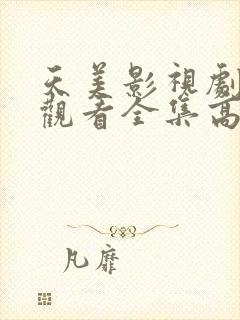 天美影視劇
觀看全集高
凡靡